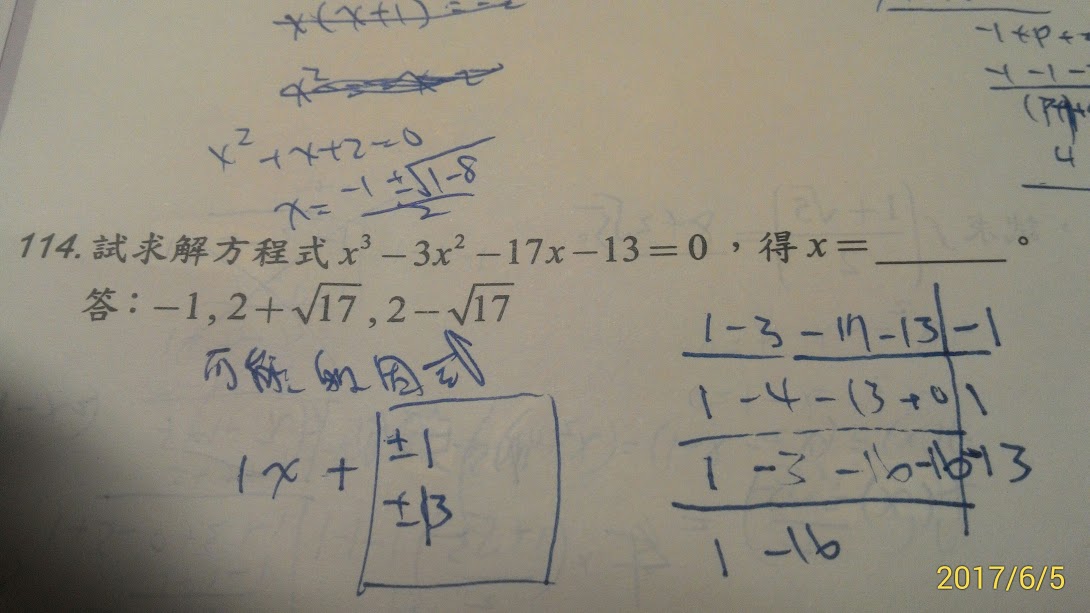 x(x+1)=-2
x²
x²+x+2=0
x= -1±√1-8 / 2
-1+p+
-1-1-
4
114. 試求解方程式 x³－3x²－17x－13＝0，得 x＝________。
答：－1, 2＋√17, 2－√17
可能的因式
1x + ±1
±13
1 -3 -17 -13 | -1
1 -4 -13 +0 | 1
1 -3 -16 -16 -13
1 -16
2017/6/5